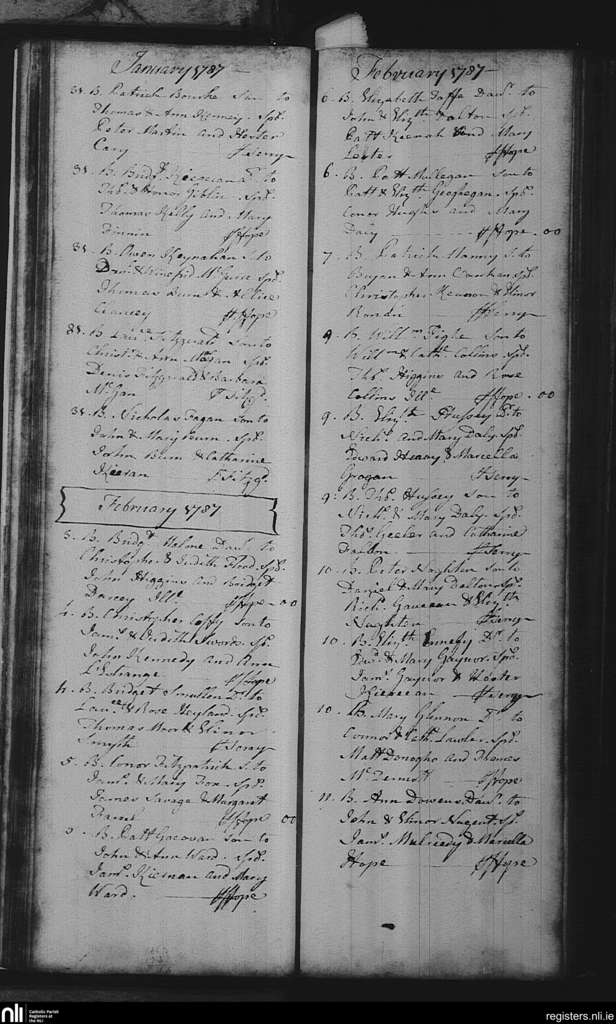 January 1787
31. B. Patrick Bourke Son to
Thomas & Ann Kenney. Sps.
Peter Martin and Hester
Cary
31. B. Bridt. Kiernan Dr. to
Thos. & Honor Giblin. Sps.
Thomas Kelly and Mary
Finnin FHope
31. B. Owen Reynahan S. to
Danl. & Winefrid McGuire Sps.
Thomas Burn & Alice
Clancey FHope
31. B. Laure. Fitzgerald Son to
Christr. & Ann Sps.
Denis Fitzgerald & Barbara
F Fitzgd.
31. B. Nicholas Fagan Son to
John & Mary Burn. Sps.
John Burn & Catharine
Keenan F Fitzgd.
February 1787
3. B. Bridgt. Malone Daur. to
Christopher & Judith Flood. Sps.
John Higgins and Bridget
Darcey Ille. FHope - 00
4. B. Christopher Coffy Son to
Jams. & Judith Swords. Sps.
John Kennedy and Ann
L'Estrange FHope
4. B. Bridget Smullen Dr. to
Laure. & Rose Heyland. Sps.
Thomas Moor & Elinor
Smyth
5. B. Conor Fitzpatrick S. to
Jams. & Mary Fox. Sps.
James Savage & Margaret
FHope 00
5. B. Patt Son to
John & Ann Ward. Sps.
Jams. Kiernan and Mary
Ward. FHope
February 1787
6. B. Elizabeth Daffe Daur. to
John & Elizth. Dalton Sps.
Patt Keenah and Mary
Lester FHope
6. B. Patt Mullegan Son to
Patt & Elizth. Geoghegan. Sps.
Conor Hughes and Mary
Dacy FHope - 00
7. B. Patrick Manny S. to
Bryan & Ann Sps.
Christopher Keenan & Elinor

9. B. Willm. Tighe Son to
Willm. & Cathe. Collins Sps.
Thos. Higgins and Rose
Collins Ille. FHope - 00
9. B. Elizth. Hussey Dr. to
Nichs. and Mary Daly. Sps.
Edward Heavy & Marcella
Grogan
9. B. Thos. Hussey Son to
Nichs. & Mary Daly. Sps.
Thos. and Catharine
Dalton
10. B. Peter Naghten Son to
Daniel & Mary Dalton Sps.
Richd. & Elizth.
Naghten
10. B. Elizth. Ennefy Dr. to
& Mary Gaynor. Sps.
Jams. Gaynor & Hester
Kiernan
10. B. Mary Glennon Dr. to
Connor & Cathe. Lawler Sps.
Matt Donegho and Frances
McDermott FHope
11. B. Ann Dowens Daur. to
John & Elinor Nugent. Sps.
Jams. Mulreedy & Marcella
Hope FHope
nli
Catholic Parish
Registers at
the NLI
registers.nli.ie